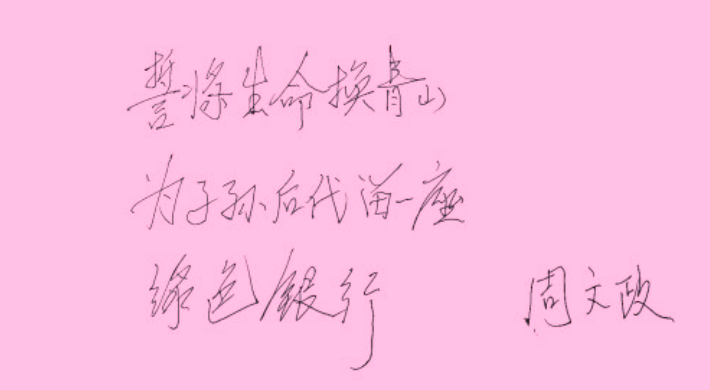 誓将生命换青山
为子孙后代留一座
绿色银行
周文政